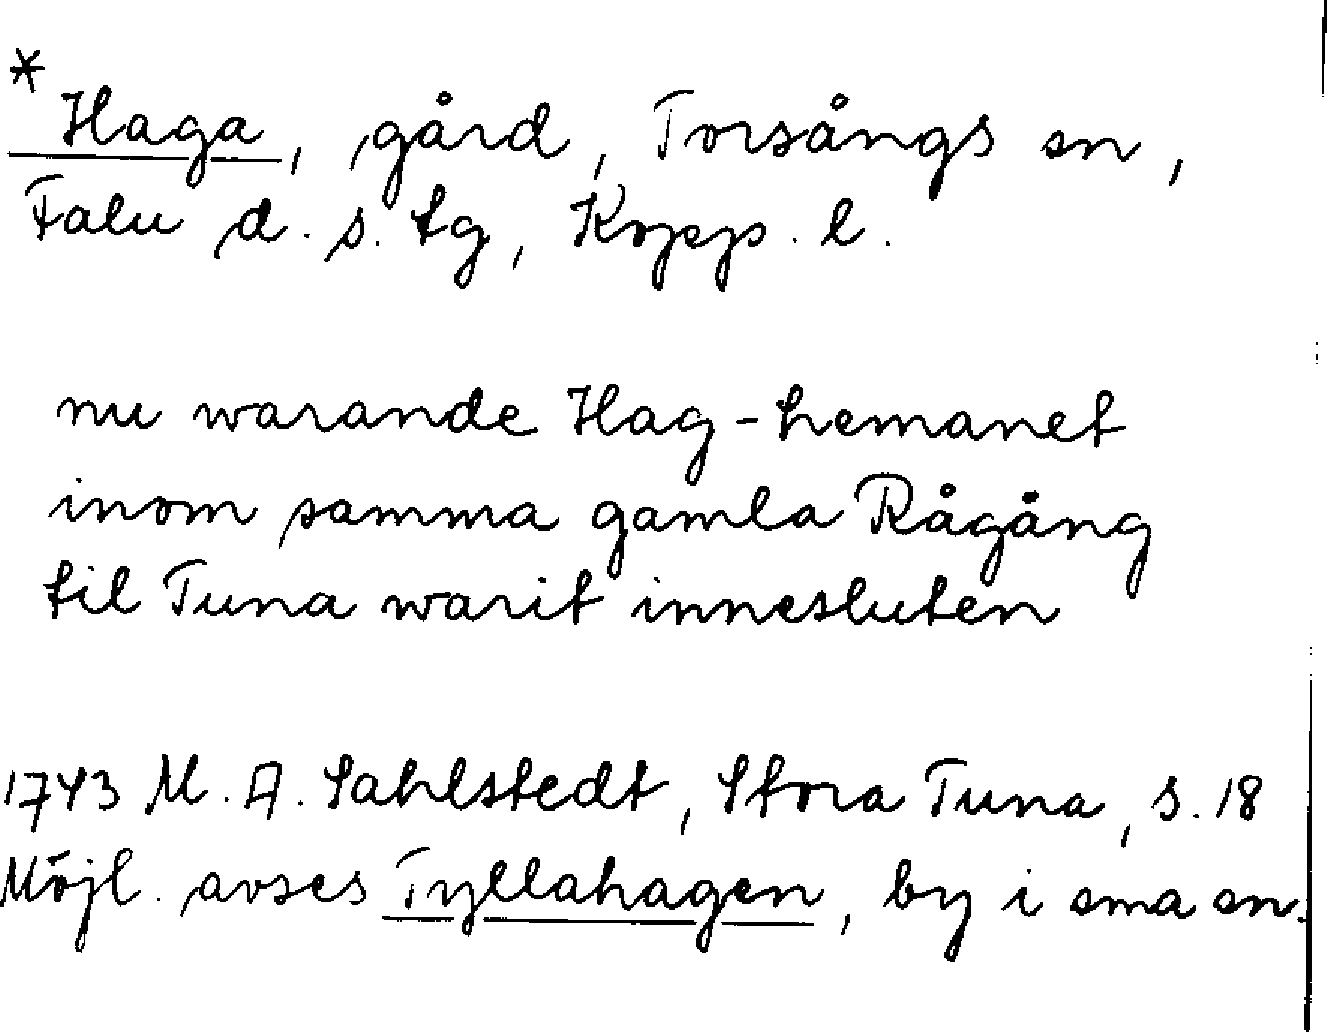 * Haga, gård, Torsångs sn,
Falu d. s. tg, Kopp. l.
nu warande Hag-hemanet
inom samma gamla Rågång
til Tuna warit innesluten
1743 M. A. Sahlstedt, Stora Tuna, s. 18
Möjl. avses Tyllahagen, by i sma sn.